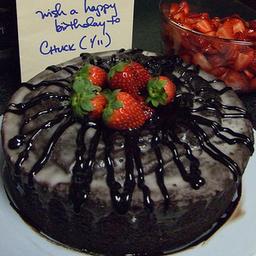 wish a happy
birthday to
CHUCK (1/11)